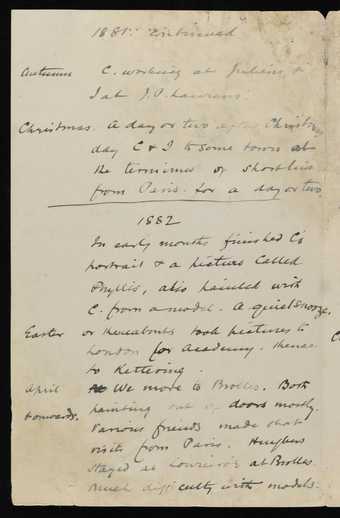 1881. continued
Autumn C. working at Julians &
I at J.P. Laurens.
Christmas. A day or two after Christmas
day C & I to some town at
the terminus of short line
from Paris. for a day or two
1882
In early months finished C's
portrait & a picture called
Phyllis, also painted with
C. from a model. A quiet snooze.
Easter or thereabouts took pictures to
London for Academy. thence
to Kettering.
April We move to Brolles. Both
onwards. painting out of doors mostly.
Various friends made short
visits from Paris. Huybers
stayed at at Brolles.
Much difficulty with models.